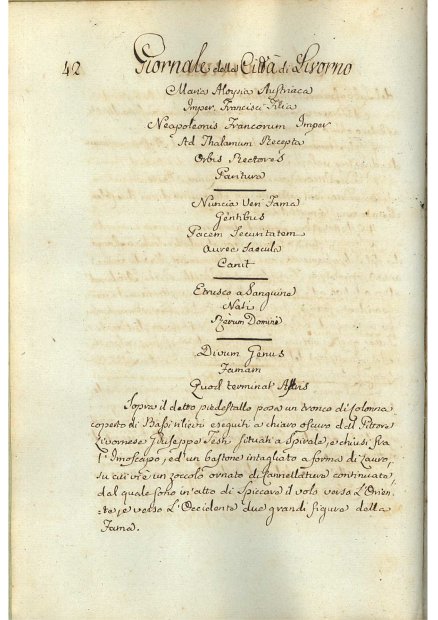 42 Giornale della Città di Livorno
Maria Aloysia Austriaca
Imper. Francisci Filia
Neapoleonis Francorum Imper
Ad Thalamum Recepta
Orbis Rectores
Paritura
Nuncia Veri Fama
Gentibus
Pacem Securitatem
Aurea Saecula
Canit
Etrusco a Sanguine
Nati
Rerum Domini
Divum Genus
Famam
Quod terminat Astris
Sopra il detto piedestallo posa un tronco di Colonna
coperto di Bassi rilievi eseguiti a chiaro oscuro dal Pittore
Livornese Giuseppe Terr. situati a Spirale, e chiusi fra
l'Imoscapo, ed un bastone intagliato a forma di Lauro,
su cui vi è un zoccolo ornato di Cannellature continuate,
dal quale sono in'alto di spiccare il volo verso L'Orien-
te, e verso L'Occidente due grandi figure della
Fama.